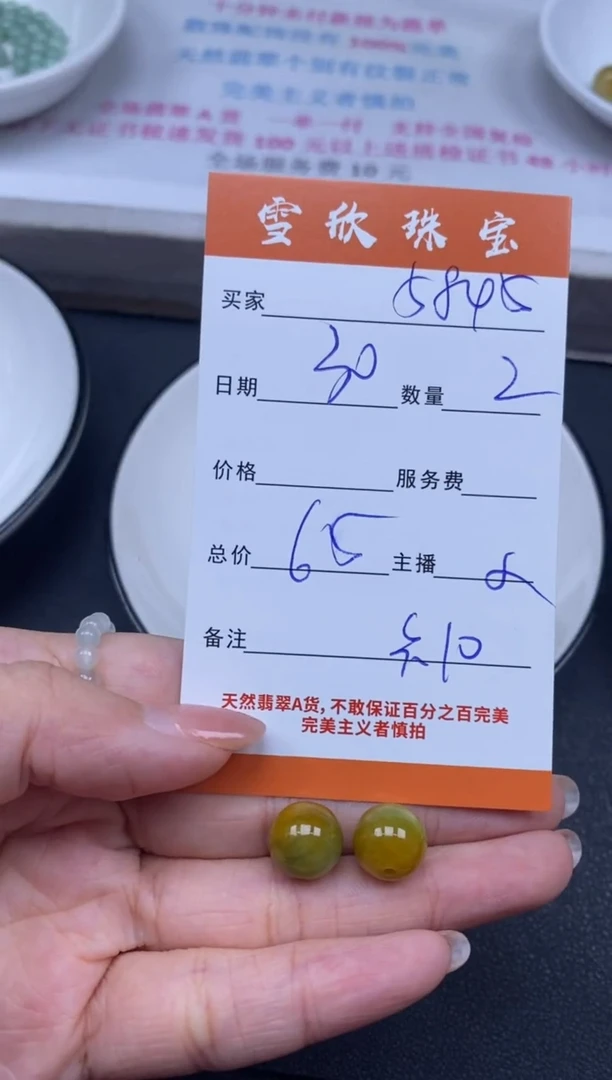 十分钟未付款视为放弃
天然翡翠个别有纹裂正常
完美主义者慎拍
全场翡翠A货 一单一付 支持全国复检
全场服务费10元
雪欣珠宝
买家 5845
日期 30 数量 2
价格 服务费
总价 65 主播
备注 10
天然翡翠A货,不敢保证百分之百完美
完美主义者慎拍